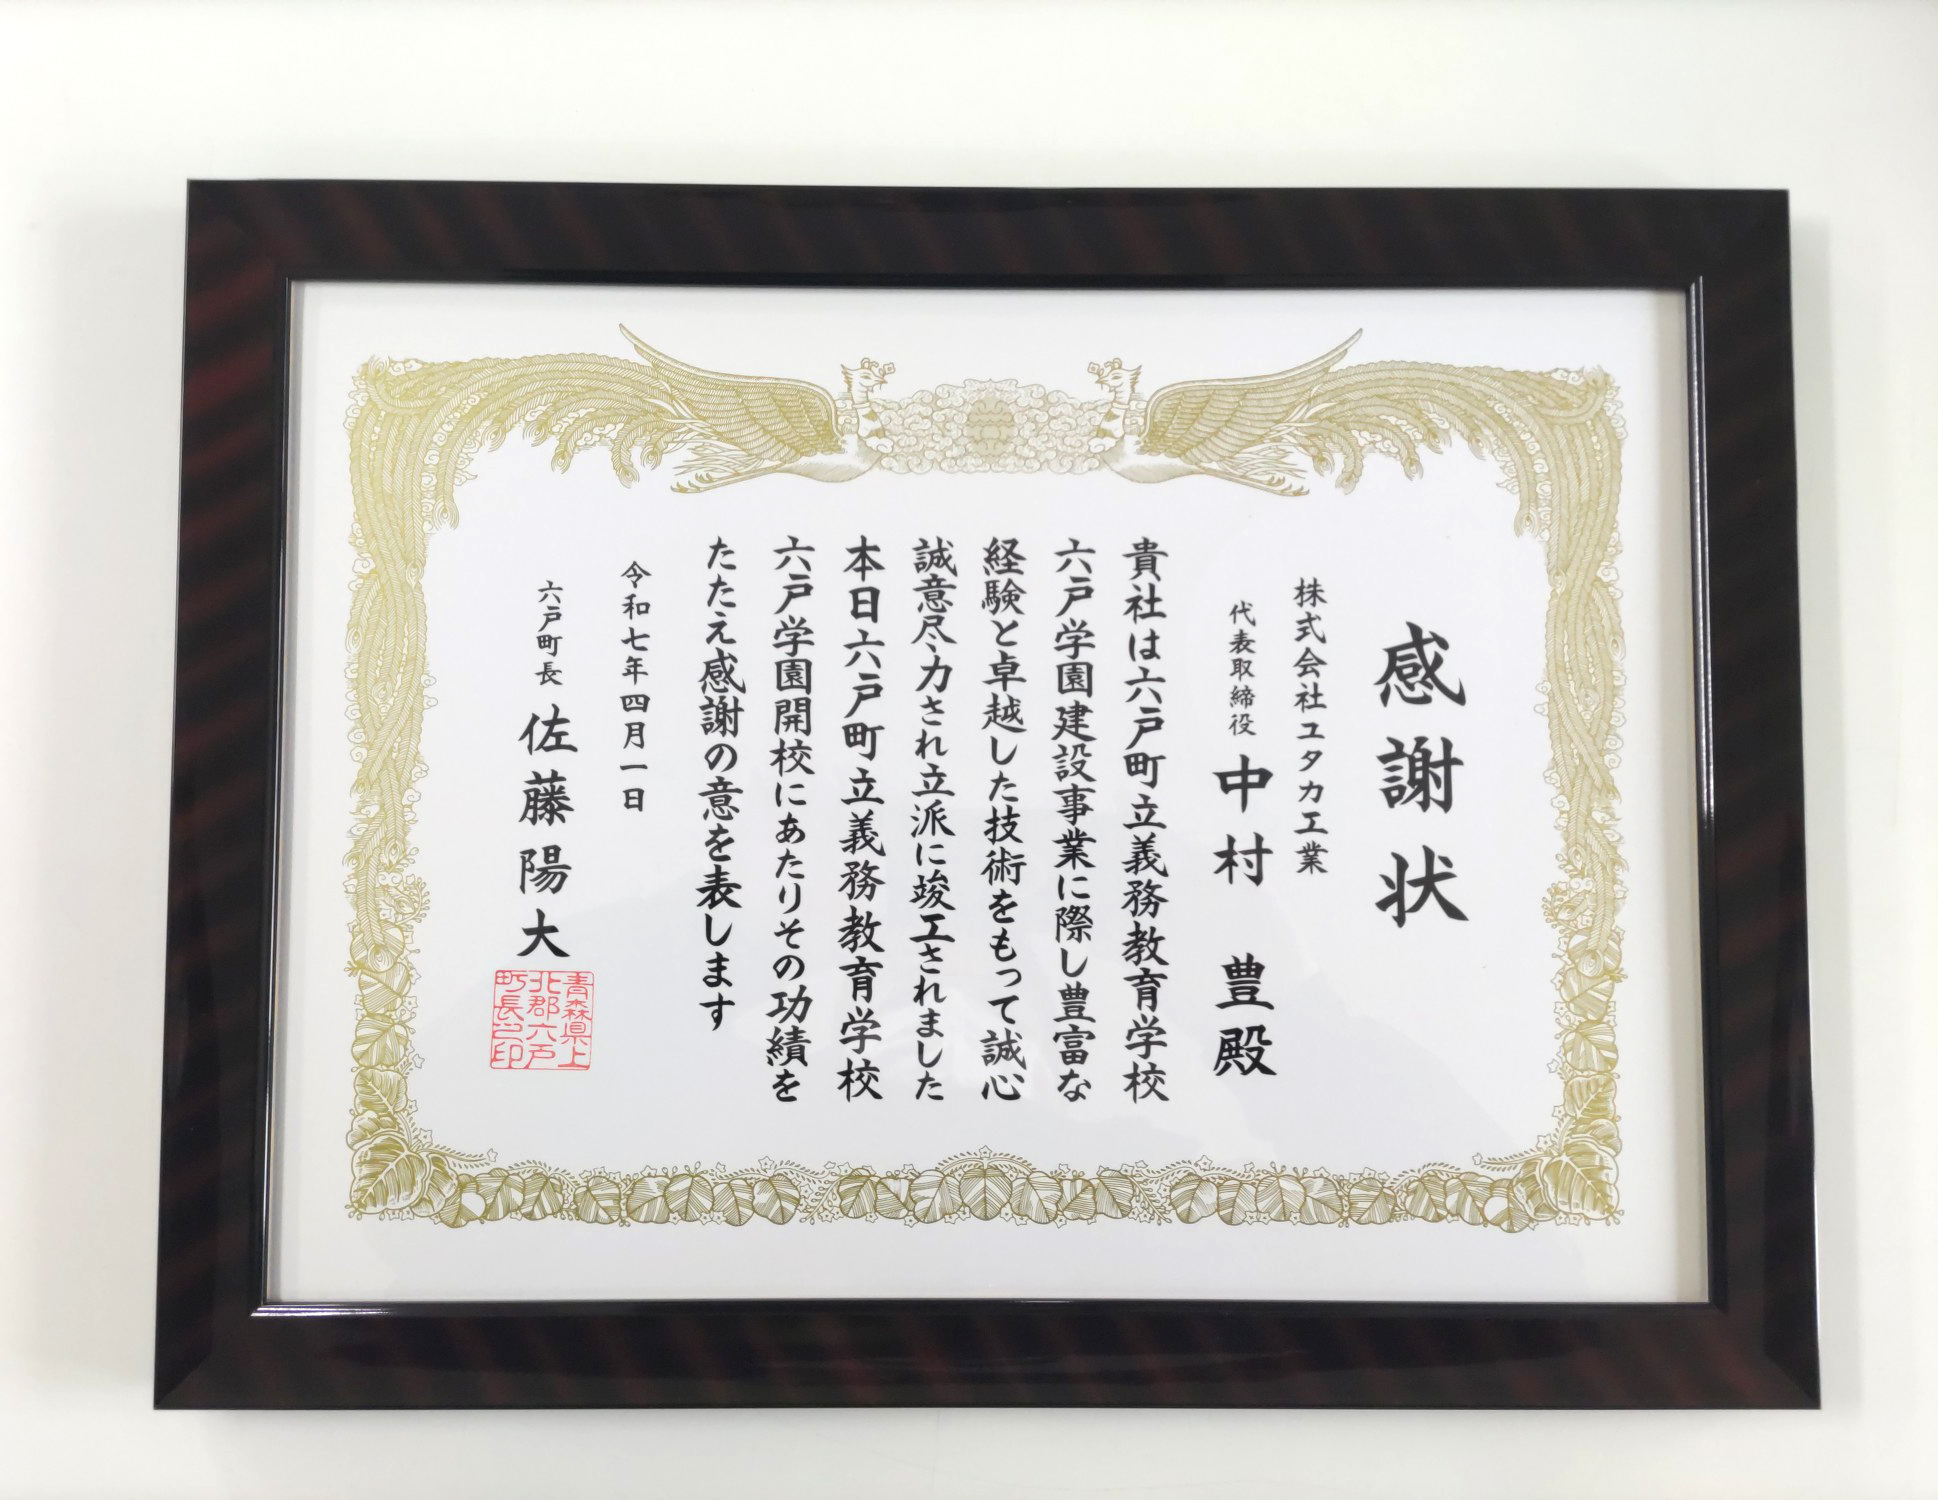 感謝状
株式会社ユタカ工業
代表取締役 中村 豊殿
貴社は六戸町立義務教育学校
六戸学園建設事業に際し豊富な
経験と卓越した技術をもって誠心
誠意尽力され立派に竣工されました
本日六戸町立義務教育学校
六戸学園開校にあたりその功績を
たたえ感謝の意を表します
令和七年四月一日
六戸町長 佐藤陽大
青森県上
北郡六戸
町長之印